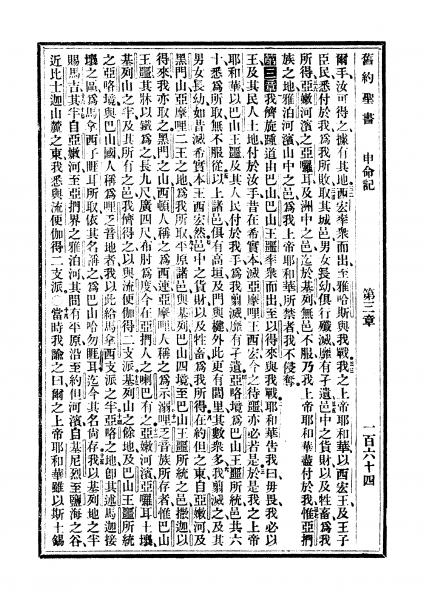 舊約聖書 申命記 第三章 一百六十四
爾手汝可得之據有其地西宏率衆而出至雅哈斯與我戰我之上帝耶和華以西宏王及王子
臣民悉付於我爲我所敗取其城邑男女長幼俱行殲滅靡有孑遺邑中之貨財以及牲畜爲我
所得自亞嫩河濱之亞囉耳及洲中之邑迄於基列無邑不服乃我上帝耶和華盡付於我惟亞捫
族之地雅泊河濱山中之邑爲我上帝耶和華所禁者我不侵奪
第三章我儕旋踵道由巴山巴山王噩率衆而出至以得來與我戰耶和華告我曰毋畏我必以
王及其民人土地付於汝手昔在希實本滅亞摩哩王西宏今之待噩亦必若是於是我之上帝
耶和華以巴山王噩及其人民付於我手爲我翦滅靡有孑遺亞略境爲巴山王噩所統邑其六
十悉爲所取無不服從以上諸邑俱有高垣及門與楗外此更有閭里其數衆多我翦滅之及其
男女長幼如昔滅希實本王西宏然邑中之貨財以及牲畜爲我所得在約但之東自亞嫩河及
黑門山亞摩哩二王之地爲我所取平原諸邑與基列巴山四境至巴山王噩所統之邑撒迦以
得來我亦取之黑門之山西頓人稱之爲西連亞摩哩人稱之爲示溺哩乏音族所存者惟巴山
王噩其牀以鐵爲之長九尺廣四尺布肘爲度今在亞捫人之喇巴有之亞嫩河濱亞囉耳土壤
基列山之半及其所有之邑我儕得之以與流便伽得二支派基列山之餘地及巴山王噩所統
之亞略境與巴山國人稱爲哩乏音地者我以此給馬拿西支派之半亞略之地創其述馬迦接
壤之區爲馬拿西子睚耳所取依其名稱之爲巴山哈勿睚耳迄今其名尙存我以基列地之半
賜馬吉其半自亞嫩河至亞捫界之雅泊河其間有平原沿至約但河濱自基尼烈至鹽海之谷
近比士迦山麓之東我悉與流便伽得二支派○當時我諭之曰爾之上帝耶和華雖以斯土錫